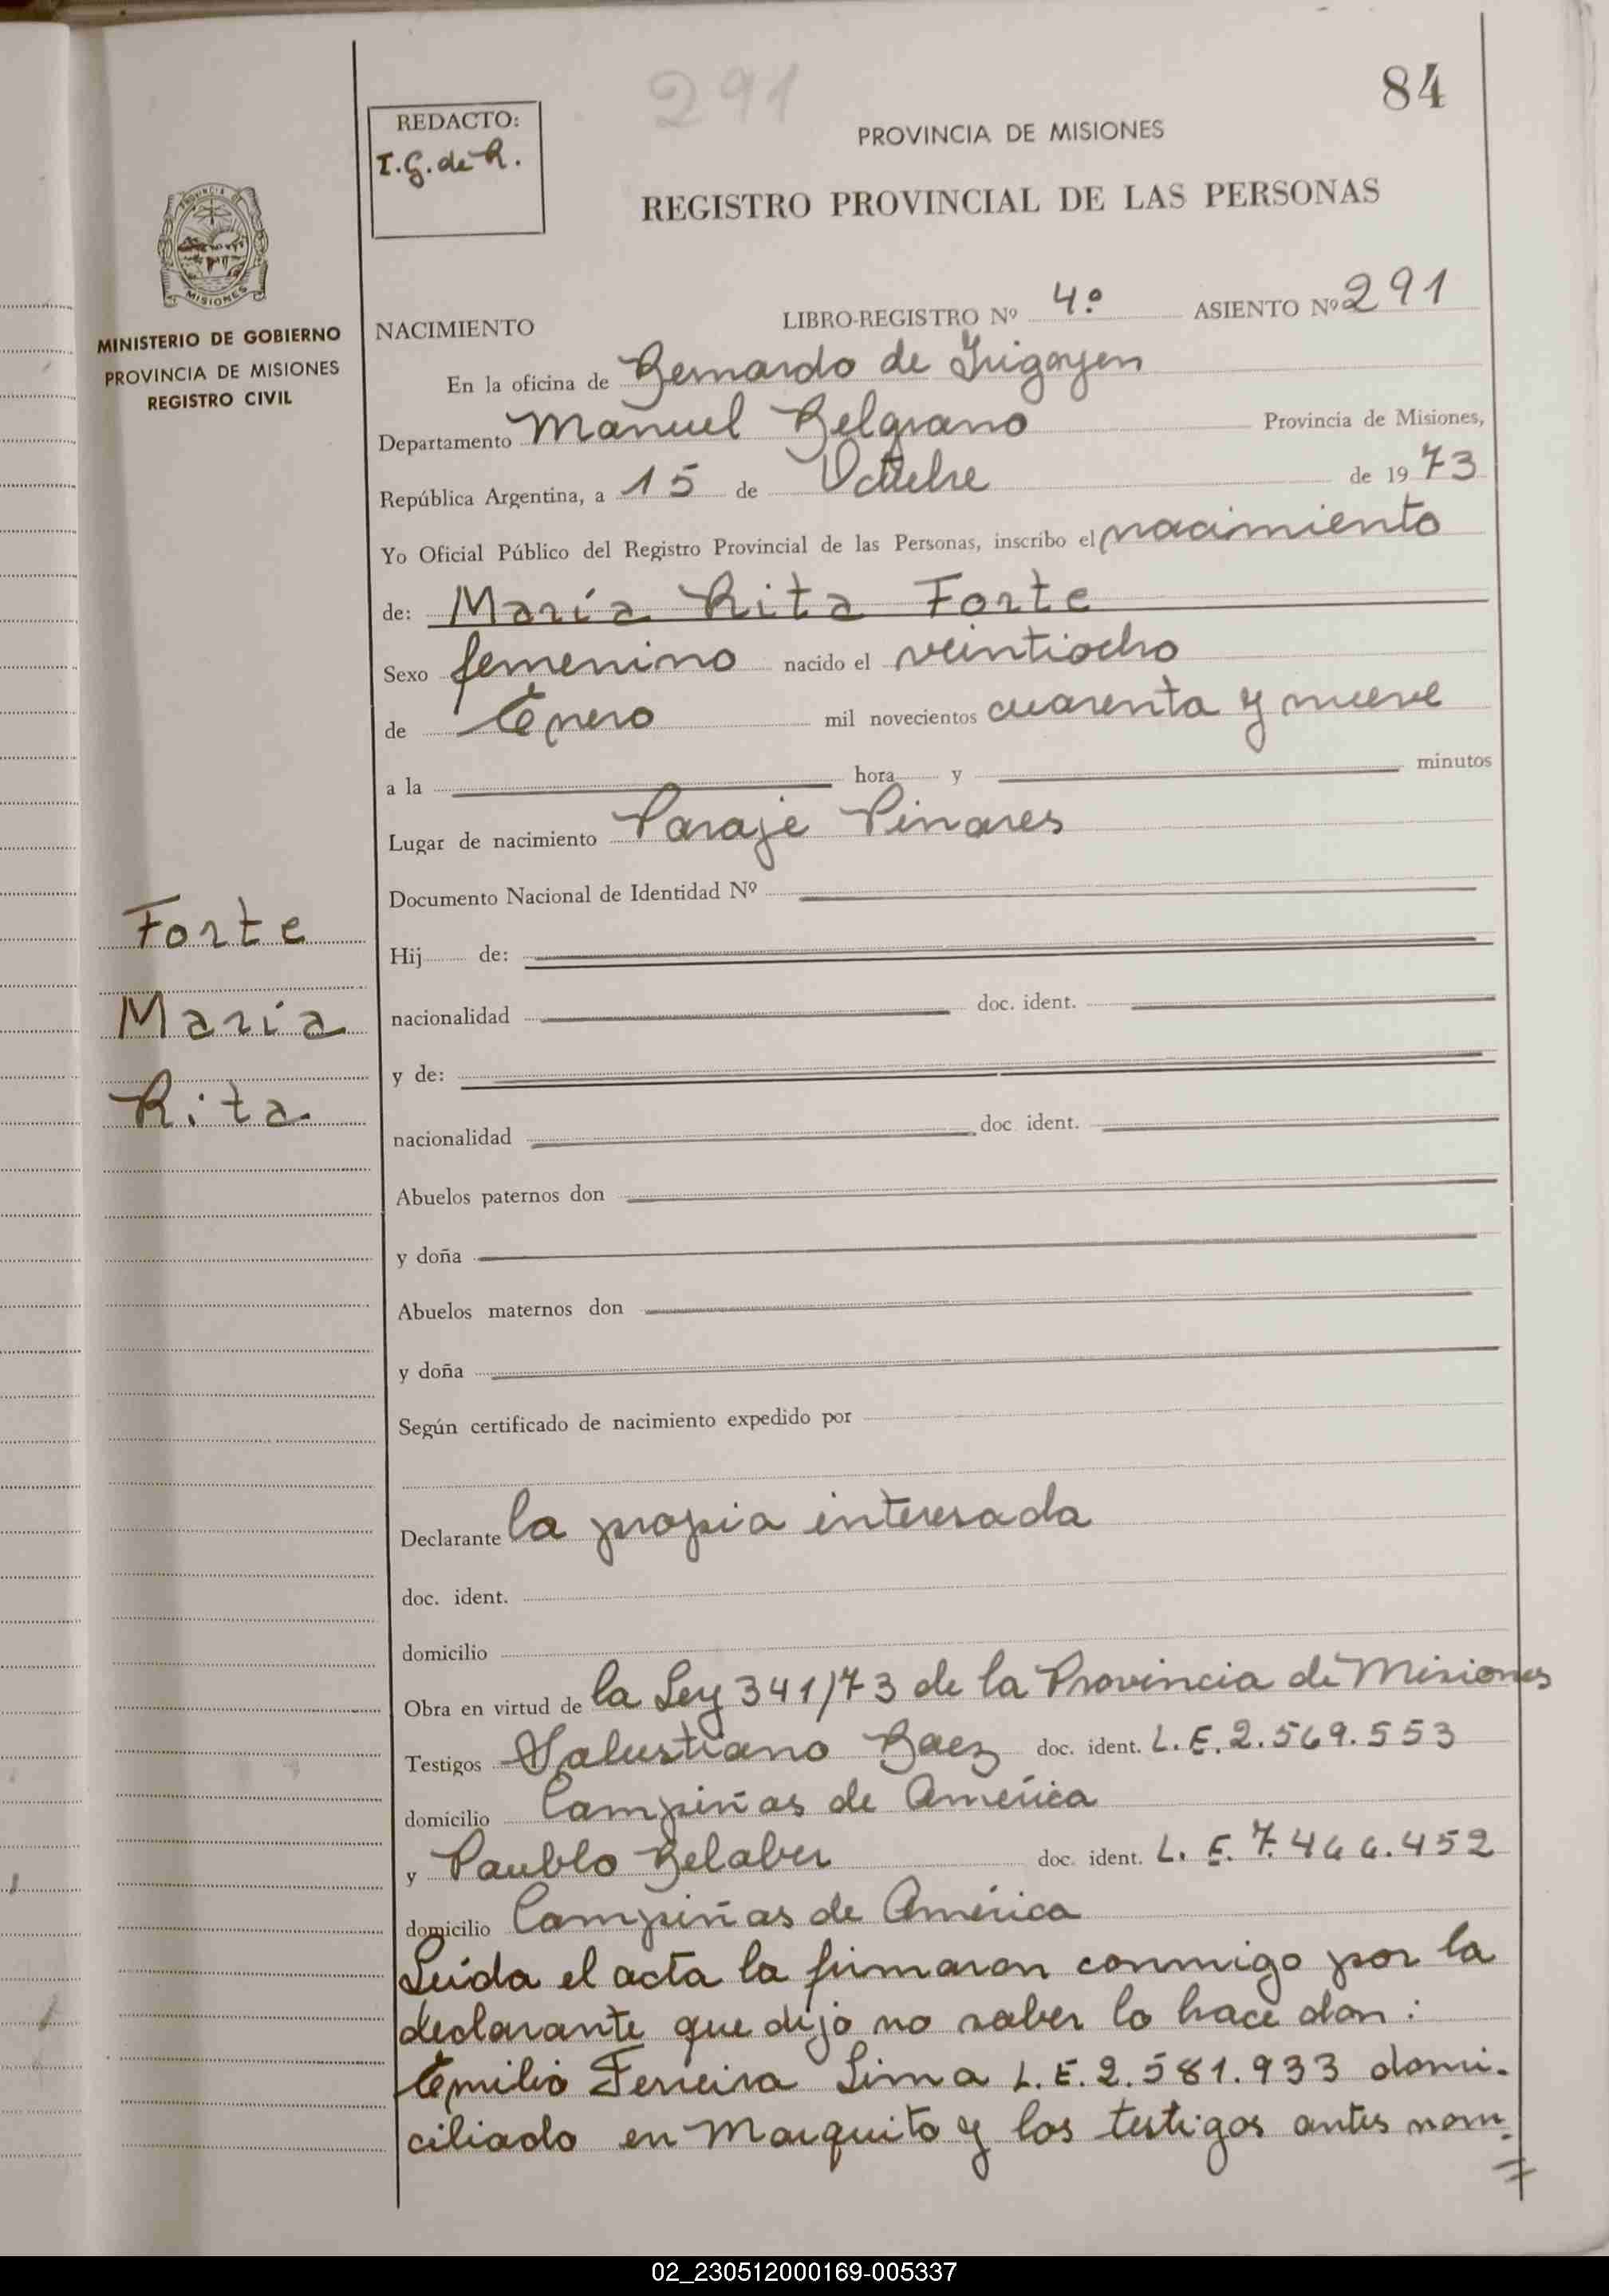 291
84
REDACTO:
I.G. de R.
PROVINCIA DE MISIONES
REGISTRO PROVINCIAL DE LAS PERSONAS
PROVINCIA
MISIONES
MINISTERIO DE GOBIERNO
PROVINCIA DE MISIONES
REGISTRO CIVIL
NACIMIENTO LIBRO-REGISTRO Nº 4.º ASIENTO Nº 291
En la oficina de Bernardo de Irigoyen
Departamento Manuel Belgrano Provincia de Misiones,
República Argentina, a 15 de Octubre de 1973
Yo Oficial Público del Registro Provincial de las Personas, inscribo el nacimiento
de: María Rita Forte
Sexo femenino nacido el veintiocho
de Enero mil novecientos cuarenta y nueve
a la hora y minutos
Lugar de nacimiento Paraje Pinares
Documento Nacional de Identidad Nº
Forte
Hij de:
María
nacionalidad doc. ident.
y de:
Rita
nacionalidad doc ident.
Abuelos paternos don
y doña
Abuelos maternos don
y doña
Según certificado de nacimiento expedido por
Declarante la propia interesada
doc. ident.
domicilio
Obra en virtud de la Ley 341/73 de la Provincia de Misiones
Testigos Salustiano Baez doc. ident. L.E. 2.569.553
domicilio Campiñas de América
y Paublo Belaber doc. ident. L.E. 7.466.452
domicilio Campiñas de América
Leída el acta la firmaron conmigo por la
declarante que dijo no saber lo hace don:
Emilio Ferreira Lima L.E. 2.581.933 domi-
ciliado en Marquito y los testigos antes nom-
02_230512000169-005337